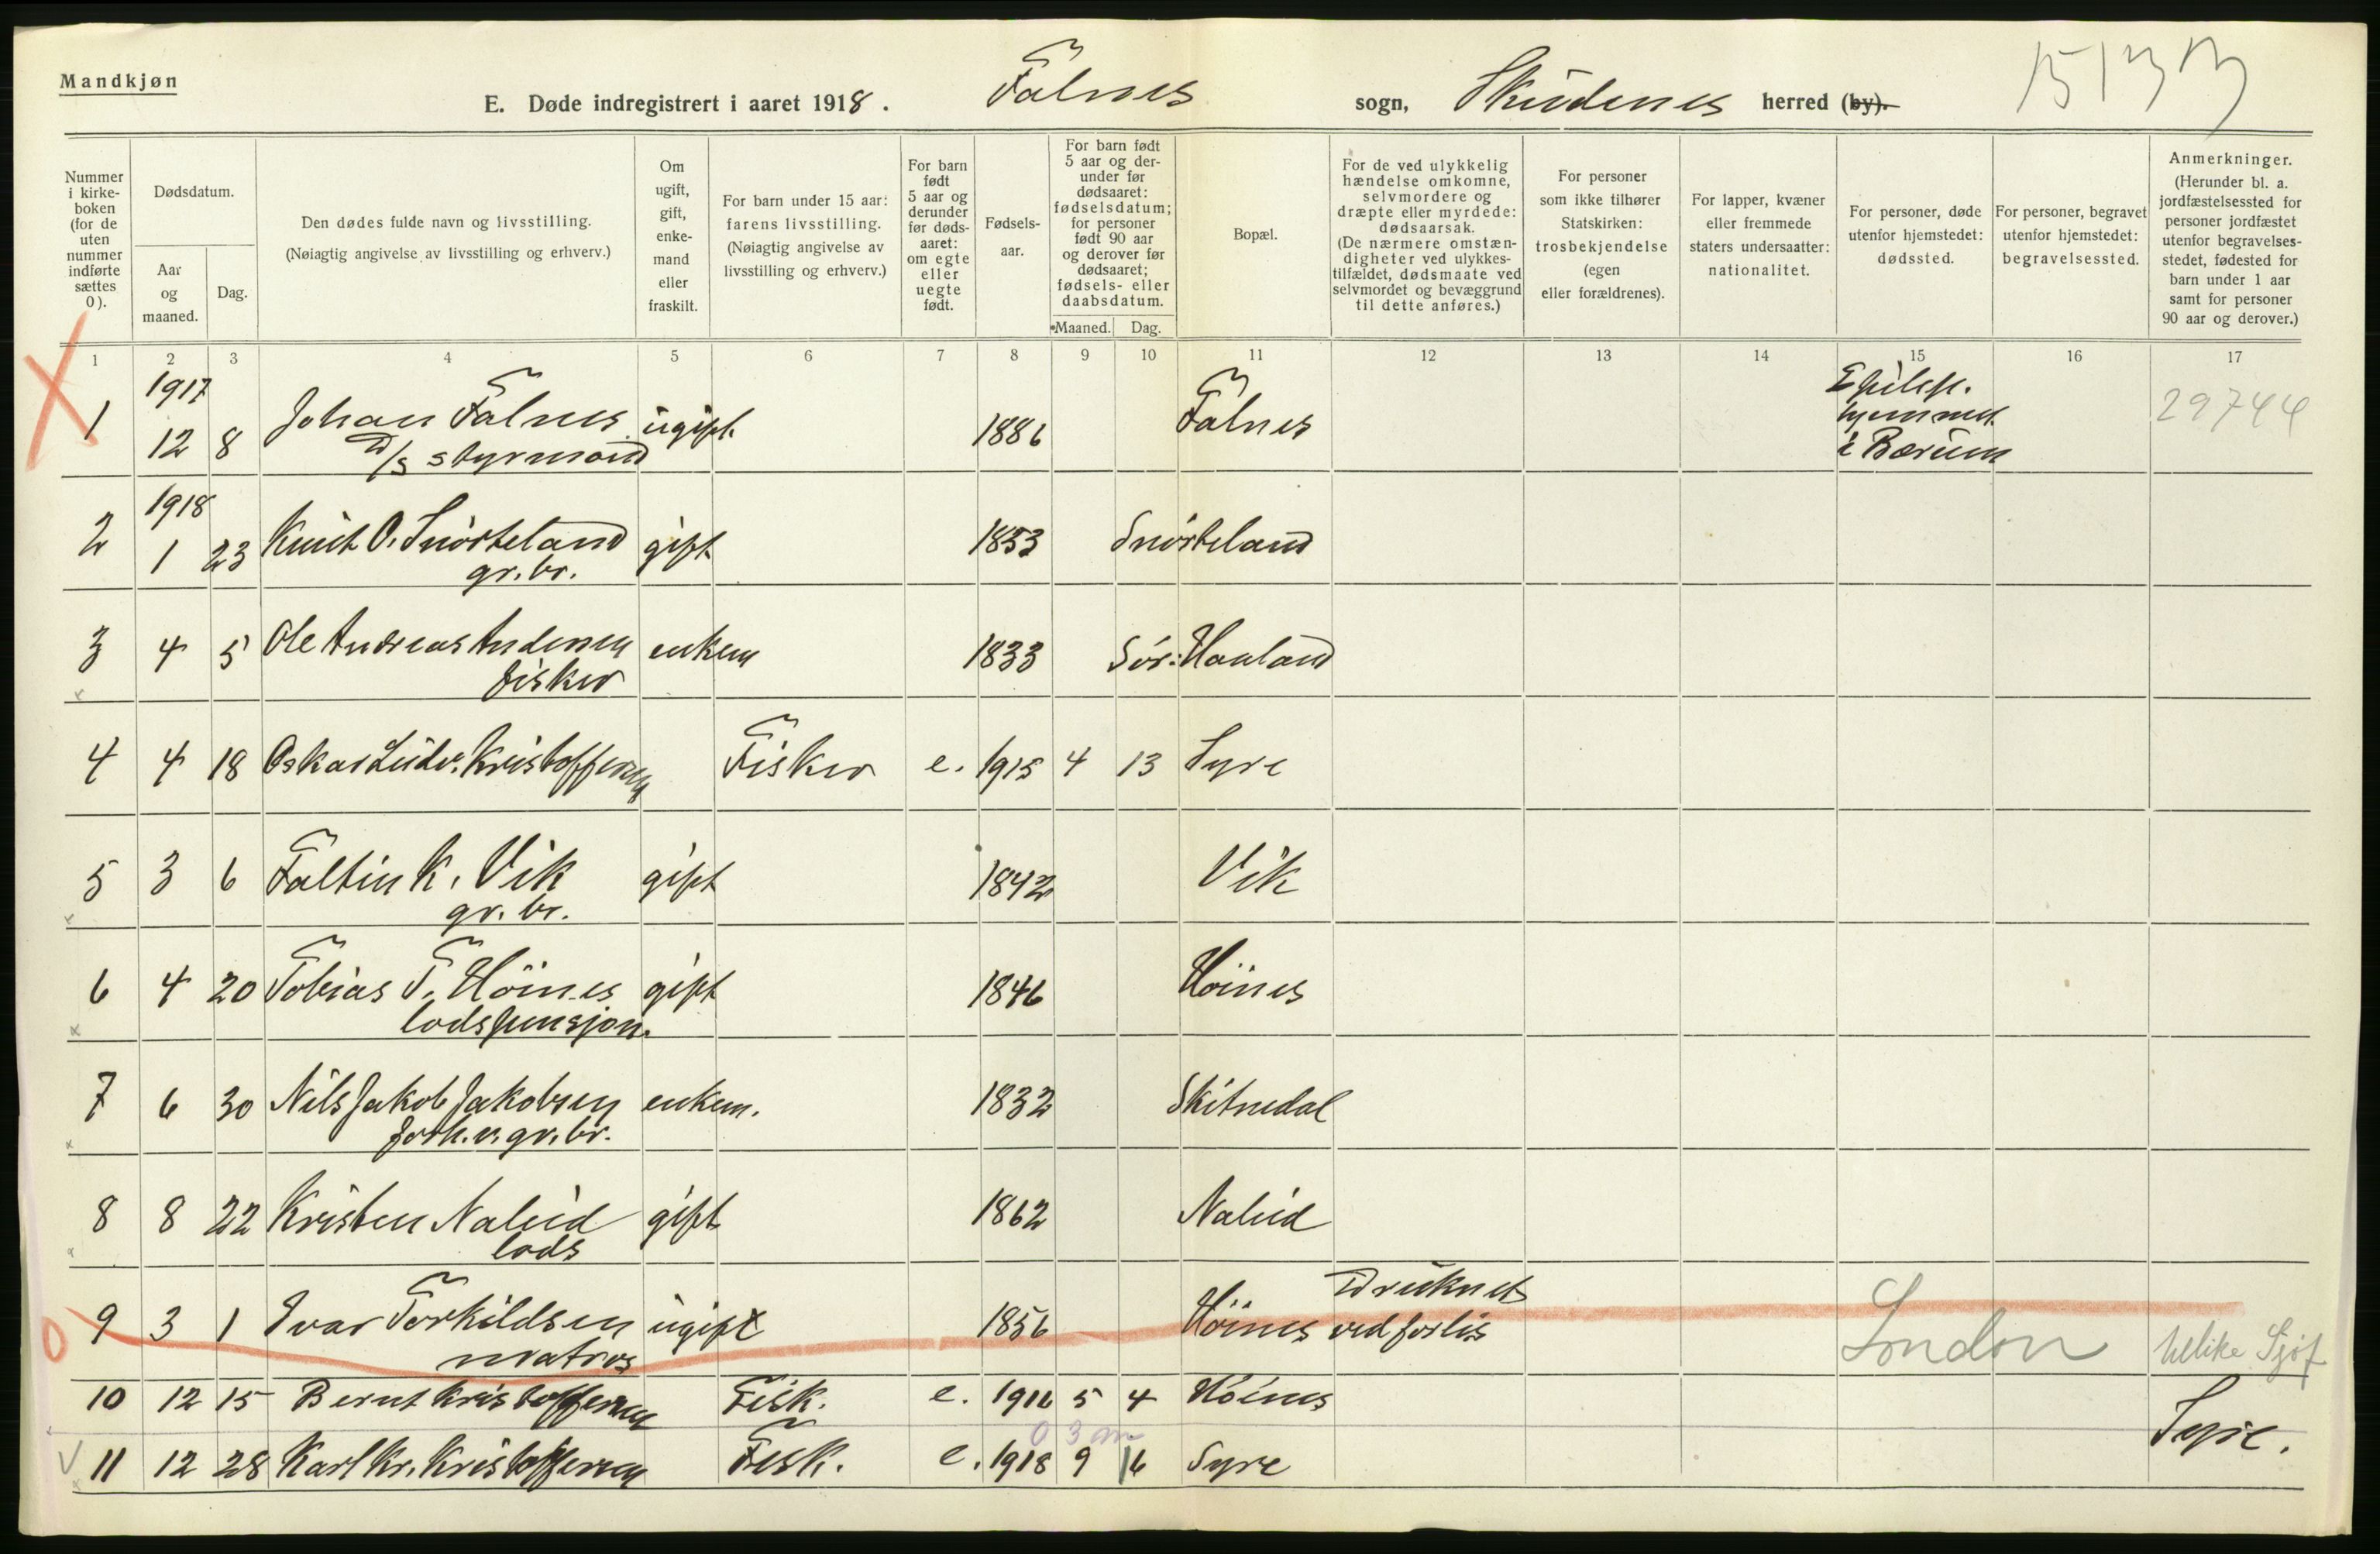 Mandkjøn
E. Døde indregistrert i aaret 1918. Falnes sogn, Skudenes herred (by).
Nummer i kirke-boken (for de uten nummer indførte sættes 0).
Dødsdatum.
Aar og maaned.
Dag.
Den dødes fulde navn og livsstilling.
(Nøiagtig angivelse av livsstilling og erhverv.)
Om ugift, gift, enke-mand eller fraskilt.
For barn under 15 aar: farens livsstilling.
(Nøiagtig angivelse av livsstilling og erhverv.)
For barn født 5 aar og derunder før døds-aaret: om egte eller uegte født.
Fødsels-aar.
For barn født 5 aar og der-under før dødsaaret: fødselsdatum; for personer født 90 aar og derover før dødsaaret; fødsels- eller daabsdatum.
Maaned. Dag.
Bopæl.
For de ved ulykkelig hændelse omkomne, selvmordere og dræpte eller myrdede: dødsaarsak.
(De nærmere omstæn-digheter ved ulykkes-tilfældet, dødsmaate ved selvmordet og bevæggrund til dette anføres.)
For personer som ikke tilhører Statskirken: trosbekjendelse (egen eller forældrenes).
For lapper, kvæner eller fremmede staters undersaatter: nationalitet.
For personer, døde utenfor hjemstedet: dødssted.
For personer, begravet utenfor hjemstedet: begravelsessted.
Anmerkninger.
(Herunder bl. a. jordfæstelsessted for personer jordfæstet utenfor begravelses-stedet, fødested for barn under 1 aar samt for personer 90 aar og derover.)
1 2 3 4 5 6 7 8 9 10 11 12 13 14 15 16 17
1917
1 12 8 Johan Falnes ugift 1886 Falnes Epilep. hjemmet i Bærum 29744
D/S styrmand
1918
2 1 23 Knut O. Snørteland gift 1853 Snørteland
gr. br.
3 4 5 Ole Andreas Andersen enkem 1833 Sør: Hauland
fisker
4 4 18 Oskar Ludv. Kristoffersen Fisker e. 1915 4 13 Syre
5 3 6 Faltin K. Vik gift 1842 Vik
gr. br.
6 4 20 Tobias T. Høines gift 1846 Høines
lodspensjon.
7 6 30 Nils Jakob Jakobsen enkem. 1832 Skitnedal
forh. v. gr. br.
8 8 22 Kristen Nalud gift 1862 Nalud
lods
9 3 1 Ivar Torkildsen ugift 1856 Høines Druknet ved forlis London
matros
10 12 15 Bernt Kristoffersen Fisk. e. 1916 5 4 Høines
0 3 m
11 12 28 Karl Kr. Kristoffersen Fisk. e. 1918 9 16 Syre Syre.